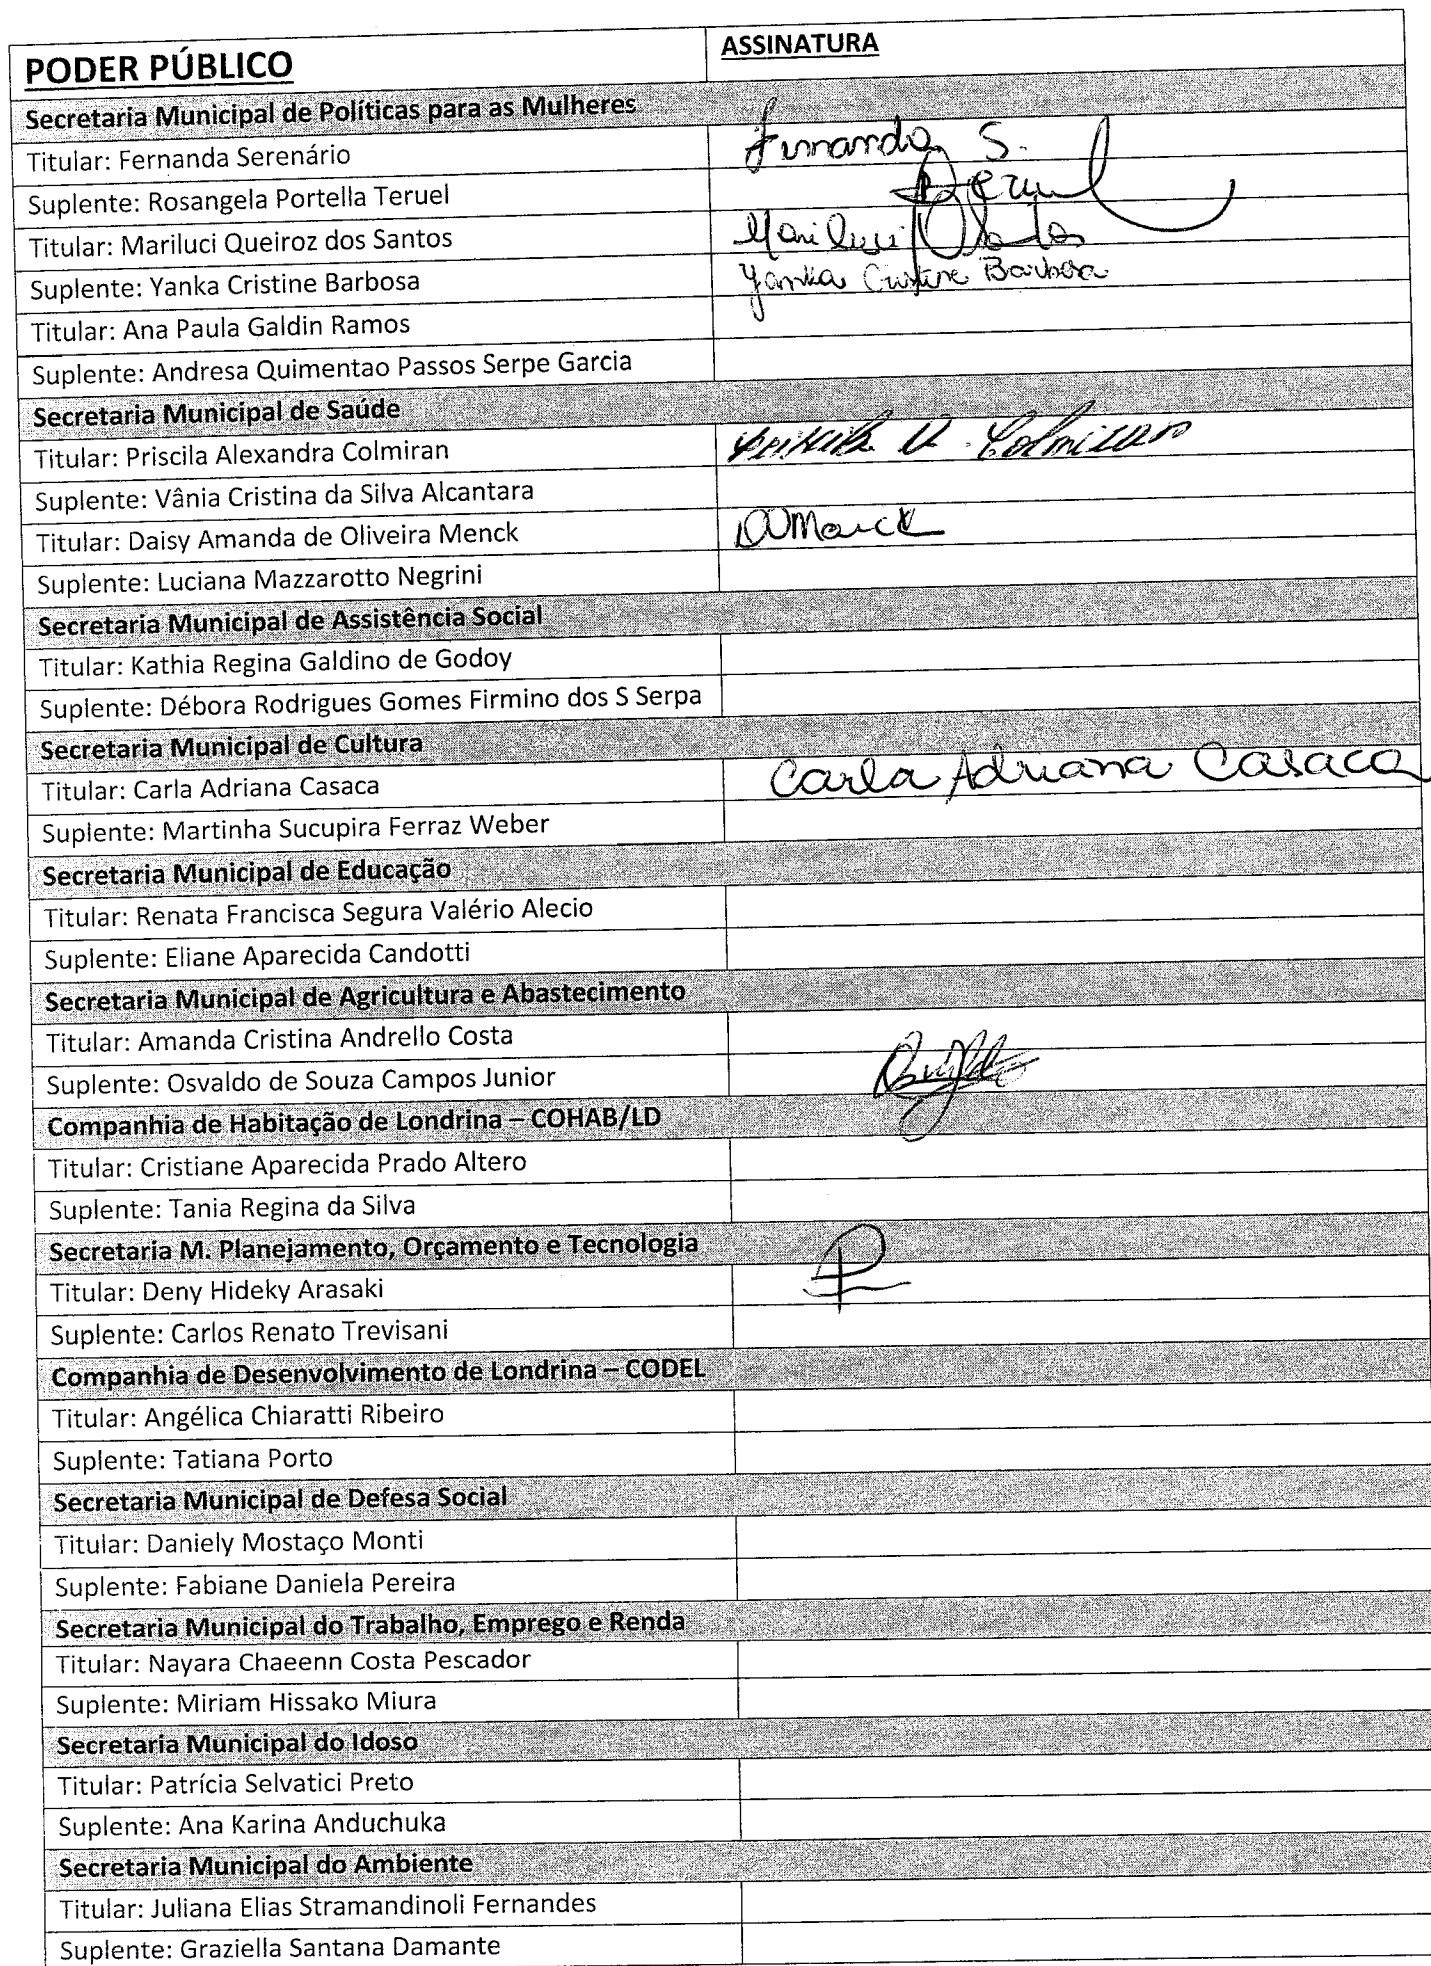 PODER PÚBLICO ASSINATURA
Secretaria Municipal de Políticas para as Mulheres
Titular: Fernanda Serenário Fernanda S.
Suplente: Rosangela Portella Teruel
Titular: Mariluci Queiroz dos Santos Mariluci
Suplente: Yanka Cristine Barbosa Yanka Cristine Barbosa
Titular: Ana Paula Galdin Ramos
Suplente: Andresa Quimentao Passos Serpe Garcia
Secretaria Municipal de Saúde
Titular: Priscila Alexandra Colmiran Priscila A. Colmiran
Suplente: Vânia Cristina da Silva Alcantara
Titular: Daisy Amanda de Oliveira Menck
Suplente: Luciana Mazzarotto Negrini
Secretaria Municipal de Assistência Social
Titular: Kathia Regina Galdino de Godoy
Suplente: Débora Rodrigues Gomes Firmino dos S Serpa
Secretaria Municipal de Cultura
Titular: Carla Adriana Casaca Carla Adriana Casaca
Suplente: Martinha Sucupira Ferraz Weber
Secretaria Municipal de Educação
Titular: Renata Francisca Segura Valério Alecio
Suplente: Eliane Aparecida Candotti
Secretaria Municipal de Agricultura e Abastecimento
Titular: Amanda Cristina Andrello Costa
Suplente: Osvaldo de Souza Campos Junior
Companhia de Habitação de Londrina – COHAB/LD
Titular: Cristiane Aparecida Prado Altero
Suplente: Tania Regina da Silva
Secretaria M. Planejamento, Orçamento e Tecnologia
Titular: Deny Hideky Arasaki
Suplente: Carlos Renato Trevisani
Companhia de Desenvolvimento de Londrina – CODEL
Titular: Angélica Chiaratti Ribeiro
Suplente: Tatiana Porto
Secretaria Municipal de Defesa Social
Titular: Daniely Mostaço Monti
Suplente: Fabiane Daniela Pereira
Secretaria Municipal do Trabalho, Emprego e Renda
Titular: Nayara Chaeenn Costa Pescador
Suplente: Miriam Hissako Miura
Secretaria Municipal do Idoso
Titular: Patrícia Selvatici Preto
Suplente: Ana Karina Anduchuka
Secretaria Municipal do Ambiente
Titular: Juliana Elias Stramandinoli Fernandes
Suplente: Graziella Santana Damante